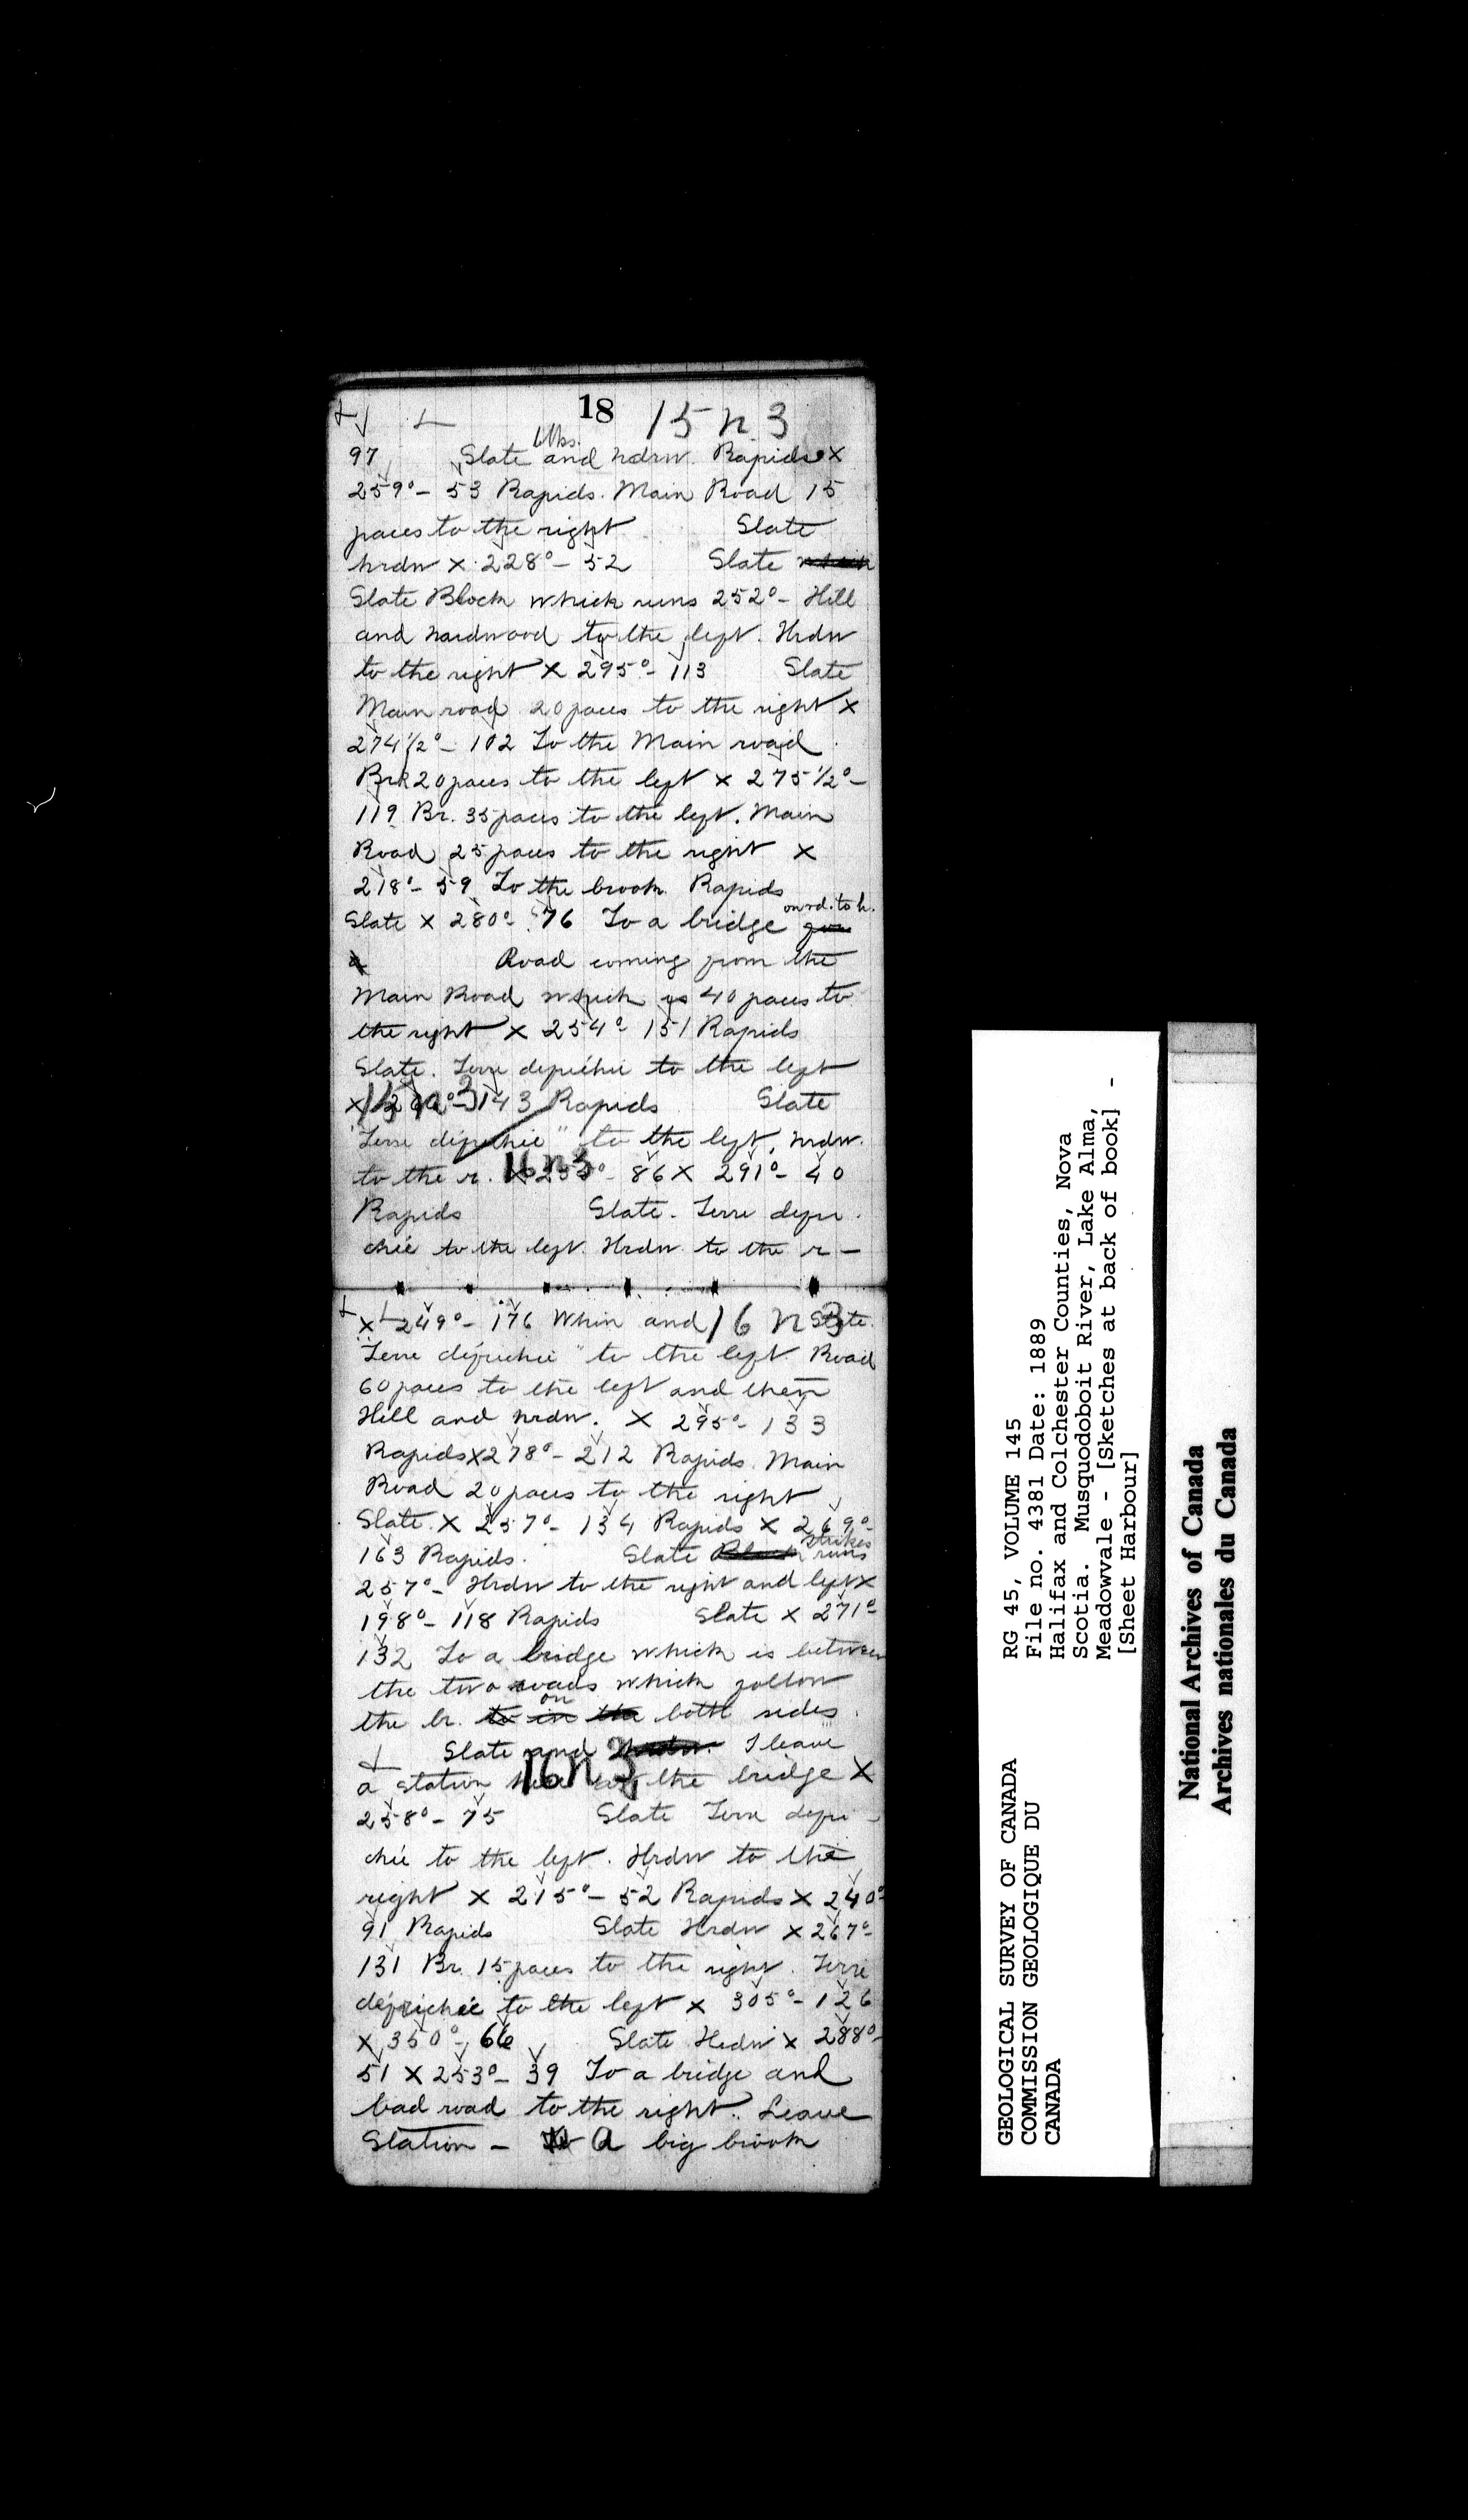 18 15 n 3
blks.
97 Slate and hrdw. Rapids X
259°- 53 Rapids. Main Road 15
paces to the right Slate
hrdw X 228°- 52 Slate
Slate Block which runs 252°- Hill
and hardwood to the left. Hrdw
to the right X 295°- 113 Slate
Main road 20 paces to the right X
274 1/2°- 102 To the Main road
Br. 20 paces to the left X 275 1/2°-
119 Br. 35 paces to the left. Main
Road 25 paces to the right X
218°- 59 To the brook Rapids
on rd. to h.
Slate X 280°- 76 To a bridge
Road coming from the
Main Road which is 40 paces to
the right X 254°- 151 Rapids
Slate. Terre défrichée to the left
15 n 3
X 143 Rapids Slate
"Terre défrichée" to the left, hrdw.
16 n 3
to the r. X 86 X 291°- 40
Rapids Slate. Terre défri-
chée to the left. Hrdw. to the r -
16 n 3
X 249°- 176 Whin and Slate.
"Terre défrichée" to the left. Road
60 paces to the left and then
Hill and hrdw. X 295°- 133
Rapids X 278°- 212 Rapids. Main
Road 20 paces to the right
Slate. X 257°- 134 Rapids X 269°-
strikes
163 Rapids. Slate Block runs
257°- Hrdw to the right and left X
198°- 118 Rapids Slate X 271°-
132 To a bridge which is between
the two roads which follow
on
the br. to in the both sides.
Slate and hrdw. I leave
16 n 3
a station the bridge X
258°- 75 Slate Terre défri-
chée to the left. Hrdw to the
right X 215°- 52 Rapids X 240°-
91 Rapids Slate Hrdw X 267°-
131 Br. 15 paces to the right. Terre
défrichée to the left X 305°- 126
X 350°- 66 Slate Hrdw X 288°-
51 X 253°- 39 To a bridge and
bad road to the right. Leave
Station - A big brook
GEOLOGICAL SURVEY OF CANADA
COMMISSION GEOLOGIQUE DU
CANADA
RG 45, VOLUME 145
File no. 4381 Date: 1889
Halifax and Colchester Counties, Nova
Scotia. Musquodoboit River, Lake Alma,
Meadowvale - [Sketches at back of book] -
[Sheet Harbour]
National Archives of Canada
Archives nationales du Canada